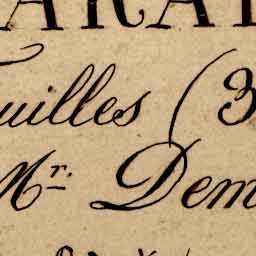 ARA
uilles (3
Mr. Dem